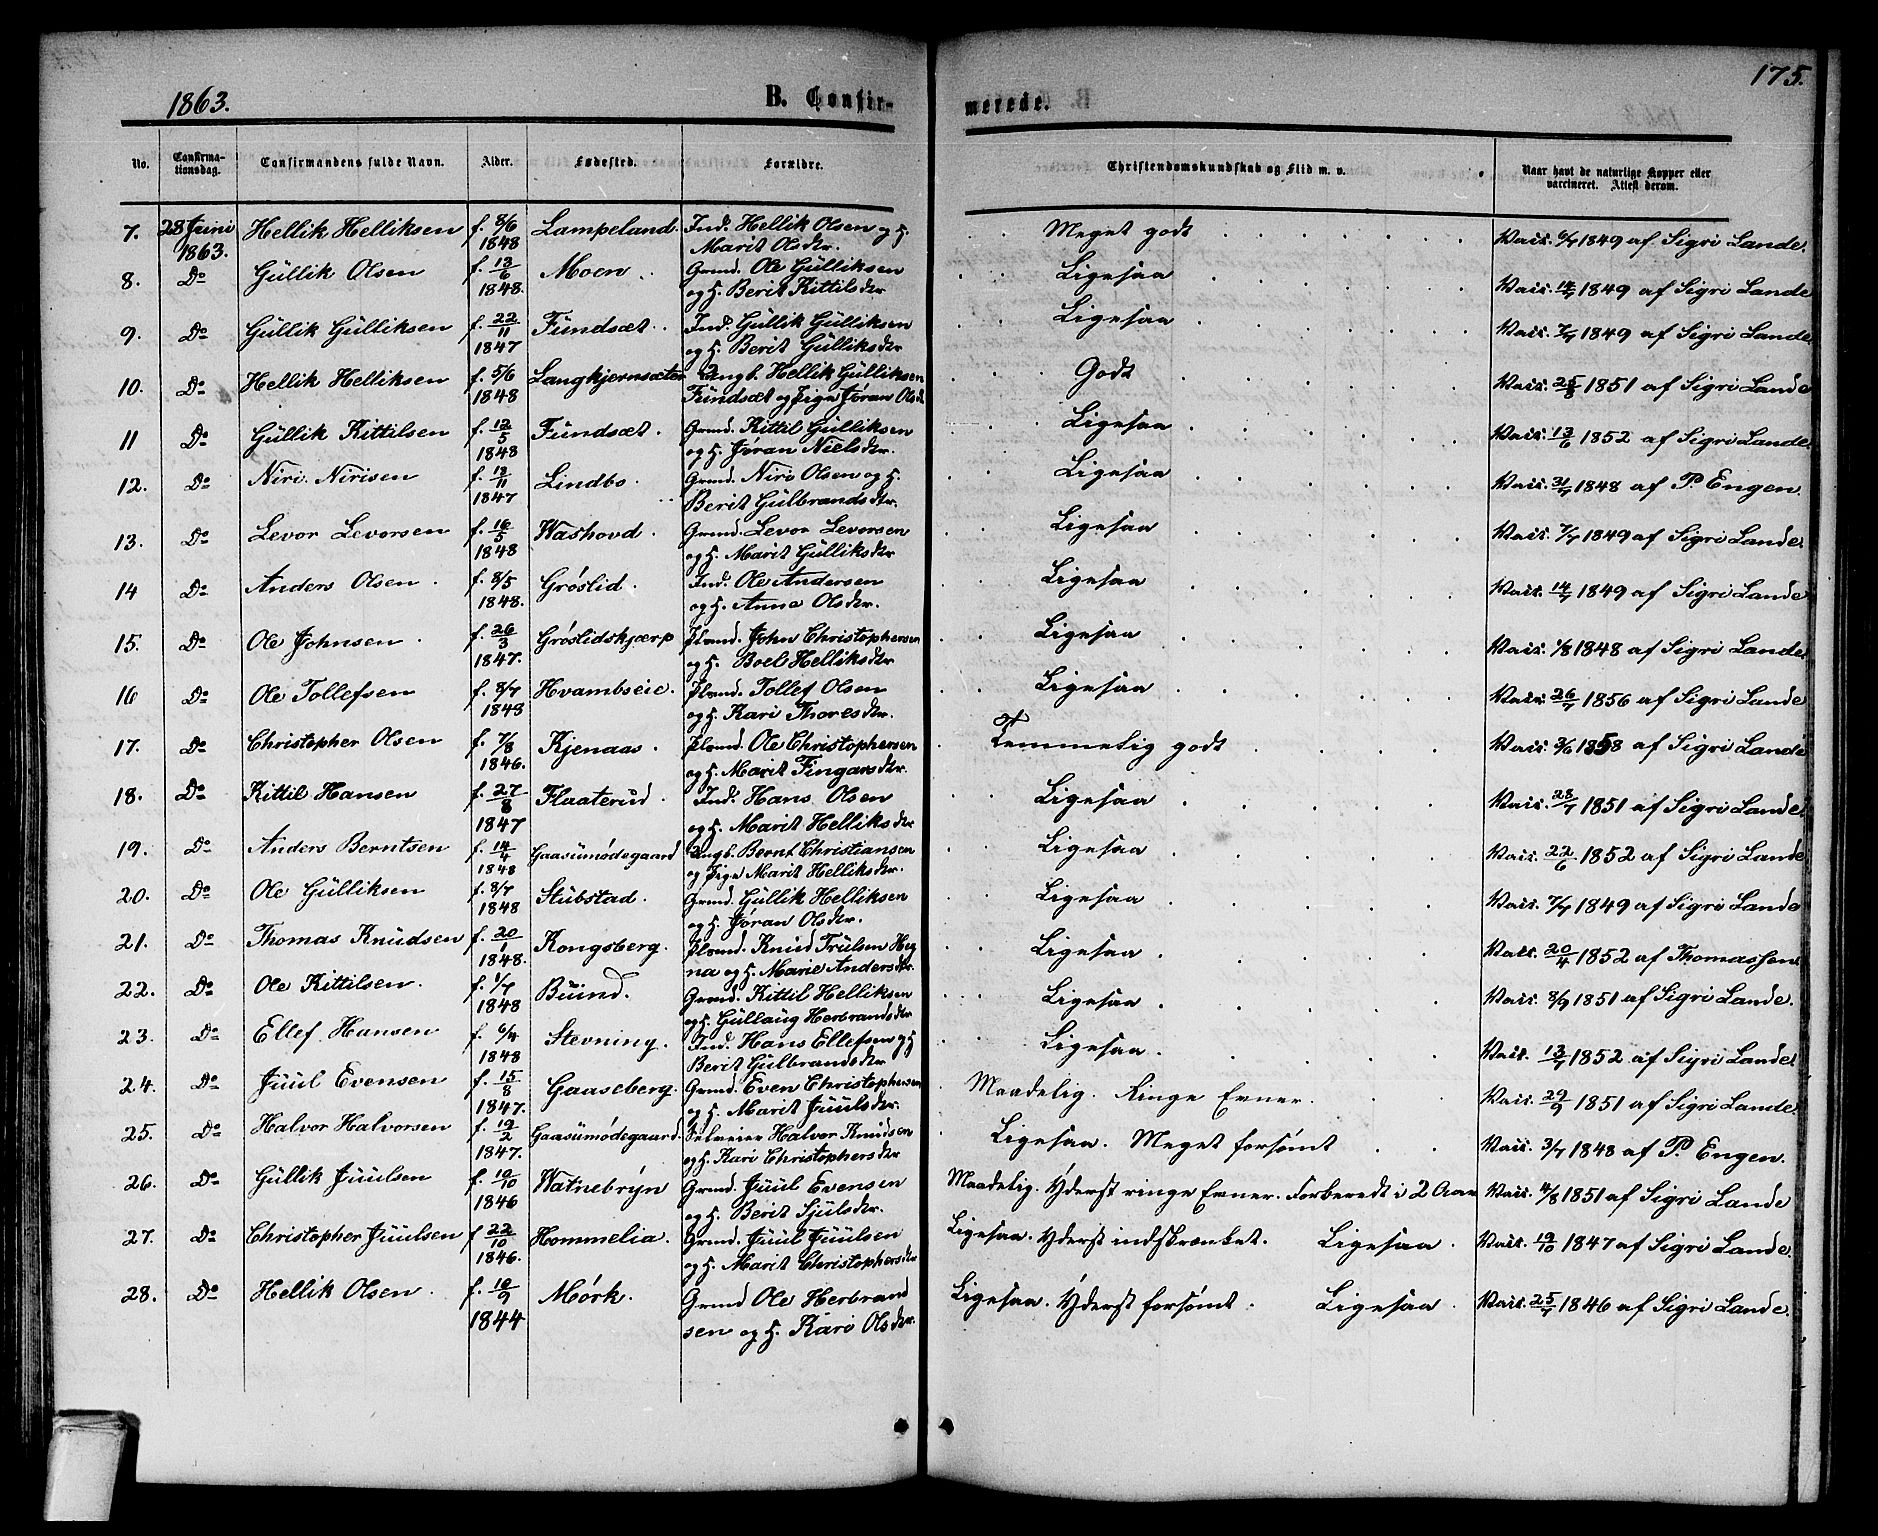 175.
1863. B. Confirmerede.
No. Confirmationsdag. Confirmandens fulde Navn. Alder. Fødested. Forældre. Christendomskundskab og Flid m. v. Naar havt de naturlige Kopper eller vaccineret. Attest derom.
7. 28 Juni 1863. Hellik Helliksen f. 8/6 1848 Lampeland. Ind. Hellik Olsen og H. Marit Olsdtr. Meget godt Vacc. 6/7 1849 af Sigri Lande.
8. Do Gullik Olsen f. 13/6 1848. Moen. Grmd. Ole Gulliksen og H. Berit Kittilsdtr Ligesaa Vacc. 14/7 1849 af Sigri Lande
9. Do Gullik Gulliksen f. 22/11 1847 Fundsæt. Ind. Gullik Gulliksen og H. Berit Gulliksdtr Ligesaa Vacc. 7/7 1849 af Sigri Lande.
10. Do Hellik Helliksen f. 5/6 1848 Langkjernsæter Ungk. Hellik Gulliksen Fundsæt og Pige Jøran Olsd. Godt Vacc. 25/8 1851 af Sigri Lande
11 Do Gullik Kittilsen f. 12/5 1848 Fundsæt. Grmd. Kittil Gulliksen og H. Jøran Nielsdtr. Ligesaa Vacc. 13/6 1852 af Sigri Lande.
12. Do Niri Nirisen f. 13/11 1847 Lindbo. Grmd. Niri Olsen og H. Berit Gulbrandsdtr. Ligesaa Vacc. 31/7 1848 af P. Engen.
13. Do Levor Levorsen f. 16/5 1848 Washovd. Grmd. Levor Levorsen og H. Marit Gulliksdtr Ligesaa Vacc. 7/7 1849 af Sigri Lande.
14 Do Anders Olsen. f. 8/5 1848. Gróslid. Ind. Ole Andersen og H. Anne Olsdtr. Ligesaa Vacc. 14/7 1849 af Sigri Lande
15. Do Ole Johnsen f. 26/3 1847. Gróslidskjærp Plsmd. John Christophersen og H. Boel Helliksdtr Ligesaa Vacc. 1/8 1848 af Sigri Lande.
16 Do Ole Tollefsen f. 8/7 1848 Hvambseie. Plsmd. Tollef Olsen og H. Kari Thoresdtr. Ligesaa Vacc. 26/7 1856 af Sigri Lande
17. Do Christopher Olsen f. 7/8 1846. Kjenaas. Plsmd. Ole Christophersen og H. Marit Fingarsdtr. Temmelig godt Vacc. 3/6 1858 af Sigri Lande
18. Do Kittil Hansen f. 27/8 1847 Flaaterud. Ind. Hans Olsen og H. Marit Helliksdtr Ligesaa Vacc. 28/7 1851 af Sigri Lande.
19. Do Anders Berntsen f. 14/4 1848 Gaasumødegaard Ungk. Bernt Christiansen og Pige Marit Helliksdtr. Ligesaa Vacc. 22/6 1852 af Sigri Lande
20. Do Ole Gulliksen f. 8/7 1848 Stubstad. Grmd. Gullik Helliksen og H. Jøran Olsdtr. Ligesaa Vacc. 7/7 1849 af Sigri Lande
21. Do Thomas Knudsen f. 20/1 1848. Kongsberg. Plsmd. Knud Trulsen Hegna og H. Marie Andersdtr. Ligesaa Vacc. 20/4 1852 af Thomassen.
22. Do Ole Kittilsen. f. 1/7 1848 Buind. Grmd. Kittil Helliksen og H. Gullaug Herbrandsdtr Ligesaa Vacc. 8/9 1851 af Sigri Lande.
23. Do Ellef Hansen f. 6/4 1848 Stevning. Ind. Hans Ellefsen og H Berit Gulbrandsdtr. Ligesaa. Vacc. 13/7 1852 af Sigri Lande.
24. Do Juul Evensen f. 15/8 1847. Gaaseberg. Grmd. Even Christophersen og H. Marit Juulsdtr. Maadelig. Ringe Evner. Vacc. 29/9 1851 af Sigri Lande.
25. Do Halvor Halvorsen f. 19/2 1847. Gaasumødegaard. Selveier Halvor Knudsen og H. Kari Christophersdtr Ligesaa. Meget forsømt Vacc. 3/7 1848 af P. Engen.
26. Do Gullik Juulsen f. 10/10 1846 Watnebryn Grmd. Juul Evensen og H. Berit Sjulsdtr. Maadelig. Yderst ringe Evner. Forberedt i 2 Aar Vacc. 4/8 1851 af Sigri Lande
27. Do Christopher Juulsen f 22/10 1846. Hommelia. Grmd. Juul Juulsen og H. Marit Christophersdtr Ligesaa. Yderst indskrænket. Ligesaa. Vacc. 19/10 1847 af Sigri Lande.
28. Do Hellik Olsen. f. 10/9 1844 Mórk. Grmd Ole Herbrandsen og H. Kari Olsdtr. Ligesaa. Yderst forsømt. Ligesaa. Vacc. 25/7 1846 af Sigri Lande.